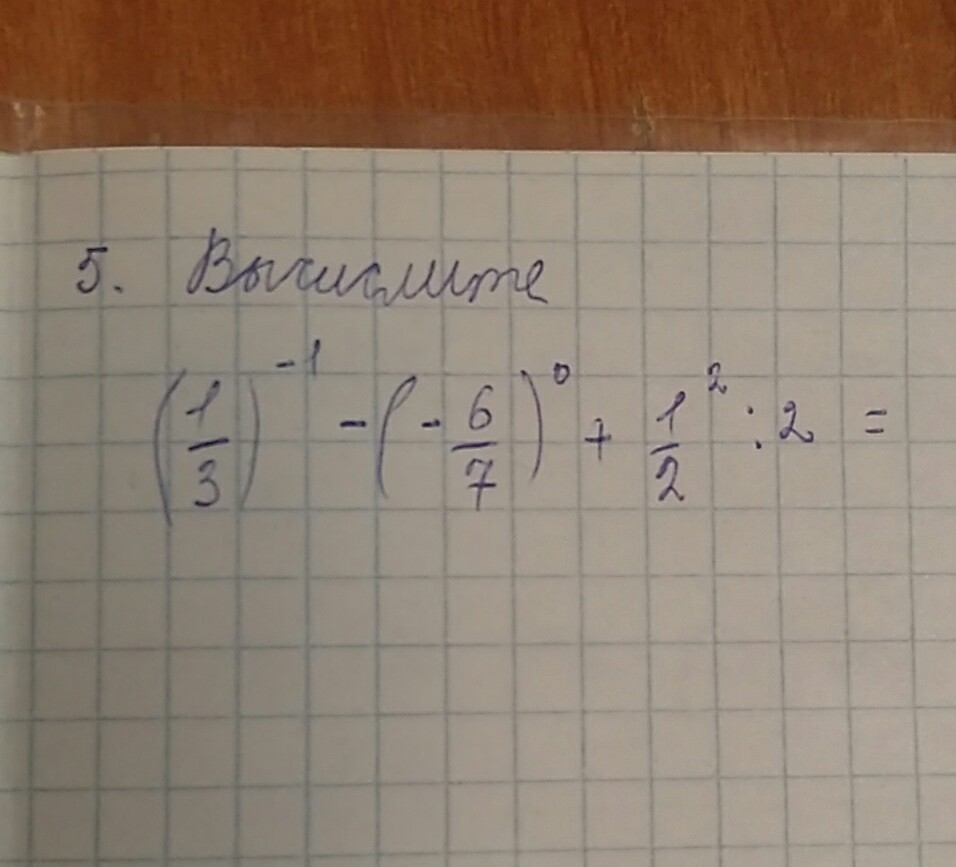 5. Вычислите
(1/3)^-1 - (-6/7)^0 + 1/2^2 : 2 =